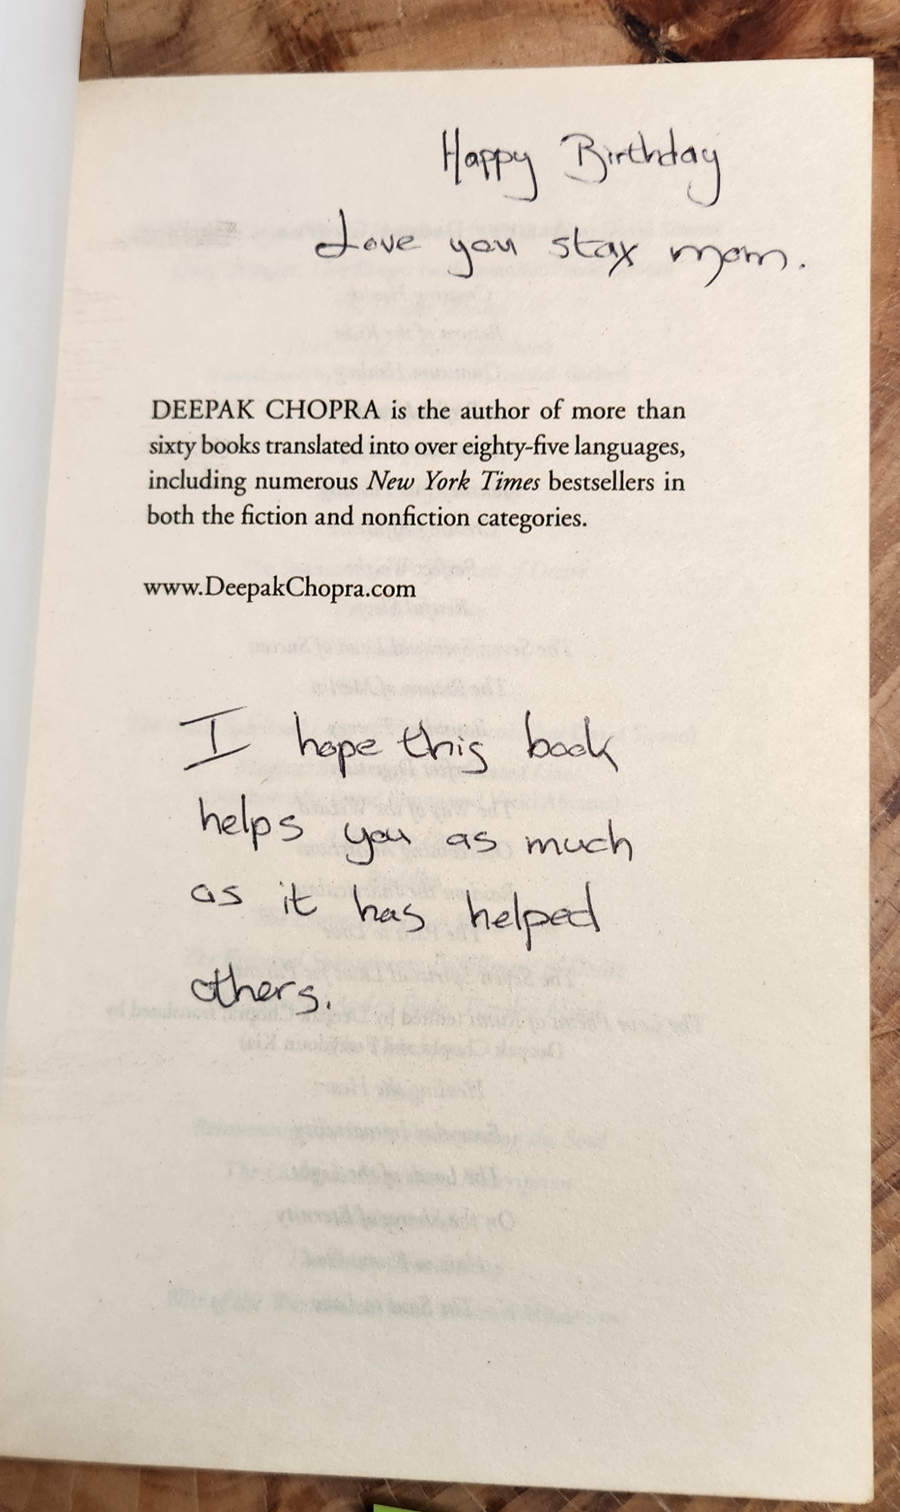 Happy Birthday
Love you stax mom.
DEEPAK CHOPRA is the author of more than
sixty books translated into over eighty-five languages,
including numerous New York Times bestsellers in
both the fiction and nonfiction categories.
www.DeepakChopra.com
I hope this book
helps you as much
as it has helped
others.